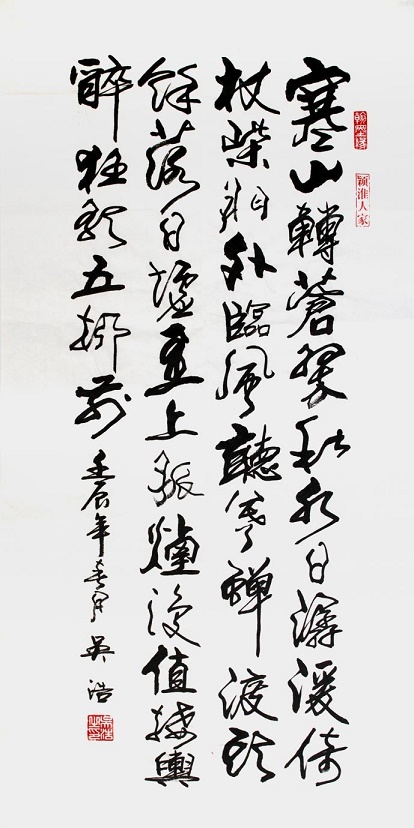 寒山轉蒼翠秋水日潺湲倚
杖柴門外臨風聽暮蟬渡頭
餘落日墟里上孤煙復值接輿
醉狂歌五柳前
壬辰年春月吳浩
颖淮人家